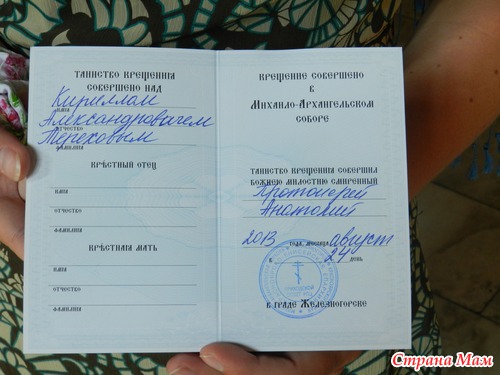 ТАИНСТВО КРЕЩЕНИЯ
СОВЕРШЕНО НАД
Кириллом
ИМЯ
Александровичем
ОТЧЕСТВО
Тереховым
ФАМИЛИЯ
КРЁСТНЫЙ ОТЕЦ
ИМЯ
ОТЧЕСТВО
ФАМИЛИЯ
КРЁСТНАЯ МАТЬ
ИМЯ
ОТЧЕСТВО
ФАМИЛИЯ
КРЕЩЕНИЕ СОВЕРШЕНО
В
МИХАИЛО-АРХАНГЕЛЬСКОМ
СОБОРЕ
ТАИНСТВО КРЕЩЕНИЯ СОВЕРШИЛ
БОЖИЕЮ МИЛОСТИЮ СМИРЕННЫЙ
Протоиерей
Анатолий
2013 ГОДА, МЕСЯЦА август
В 24 ДЕНЬ
В ГРАДЕ ЖЕЛЕЗНОГОРСКЕ
Страна Мам